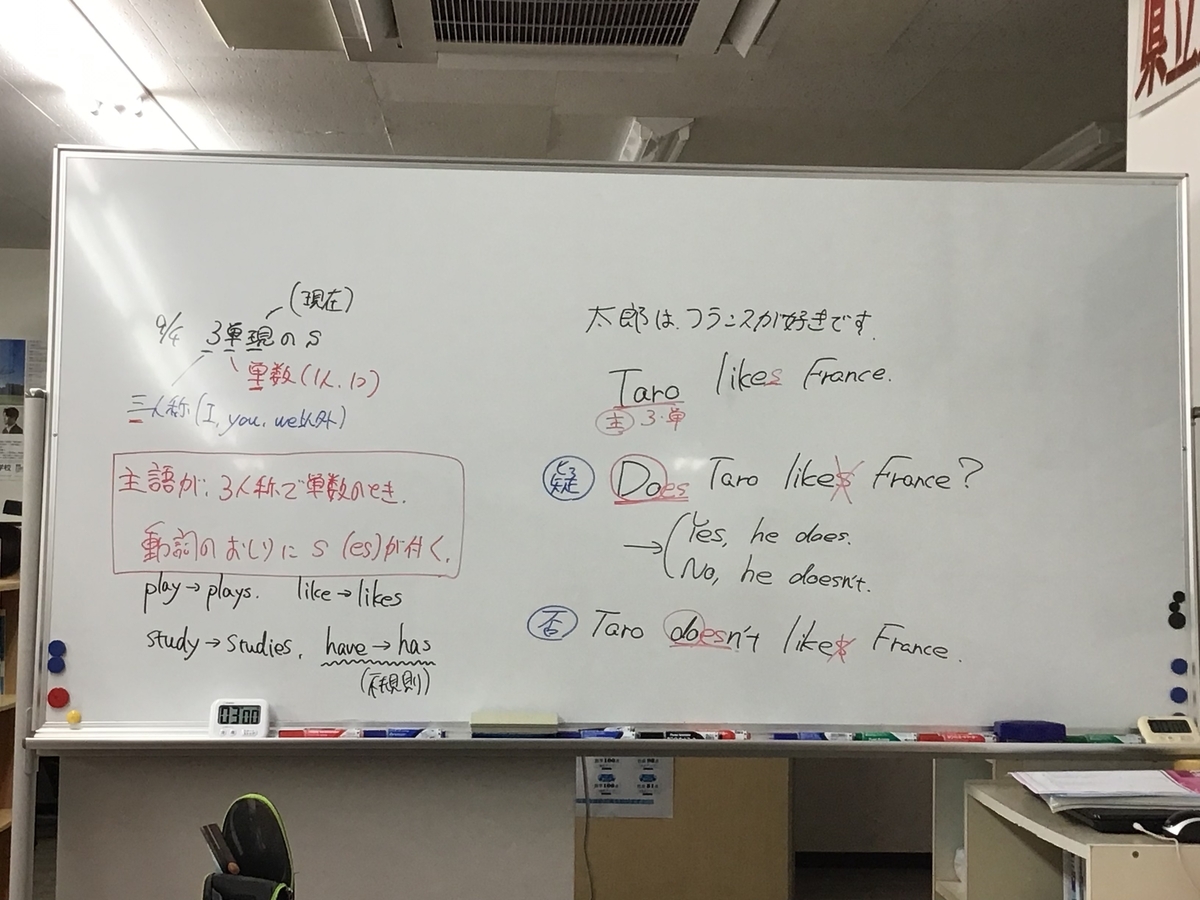 (現在)
9/4 3単現のs
単数(1人、1つ)
三人称(I, you, we以外)
主語が、3人称で単数のとき、
動詞のおしりに s (es)が付く。
play→plays. like→likes
study→studies, have→has
(不規則)
太郎は、フランスが好きです。
Taro likes France.
主 3・単
疑 Does Taro likes France?
→ Yes, he does.
No, he doesn't.
否 Taro doesn't likes France.
03:00
県立